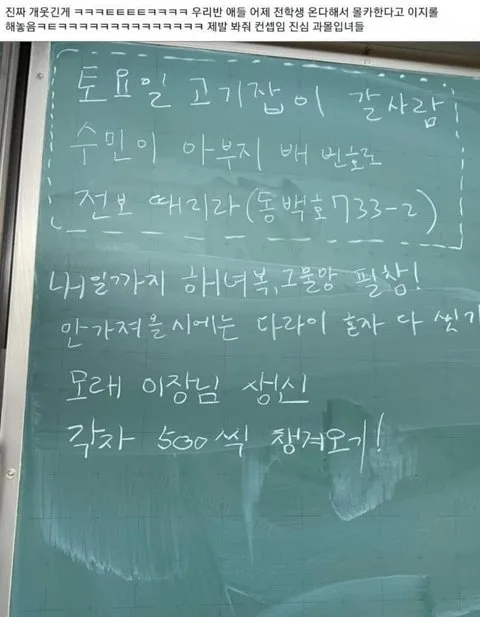 진짜 개웃긴게 ㅋㅋㅋㅌㅌㅌㅌㅋㅋㅋㅋ 우리반 애들 어제 전학생 온다해서 몰카한다고 이지롤
해놓음ㅋㅌㅋㅋㅋㅋㅋㅋㅋㅋㅋㅋㅋㅋㅋㅋㅋ 제발 봐줘 컨셉임 진심 과몰입녀들
토요일 고기잡이 갈사람
수민이 아부지 배 번호로
전보 때리라(동백호733-2)
내일까지 해녀복,그물망 필참!
안가져올시에는 다라이 혼자 다 씻기
모래 이장님 생신
각자 500씩 챙겨오기!